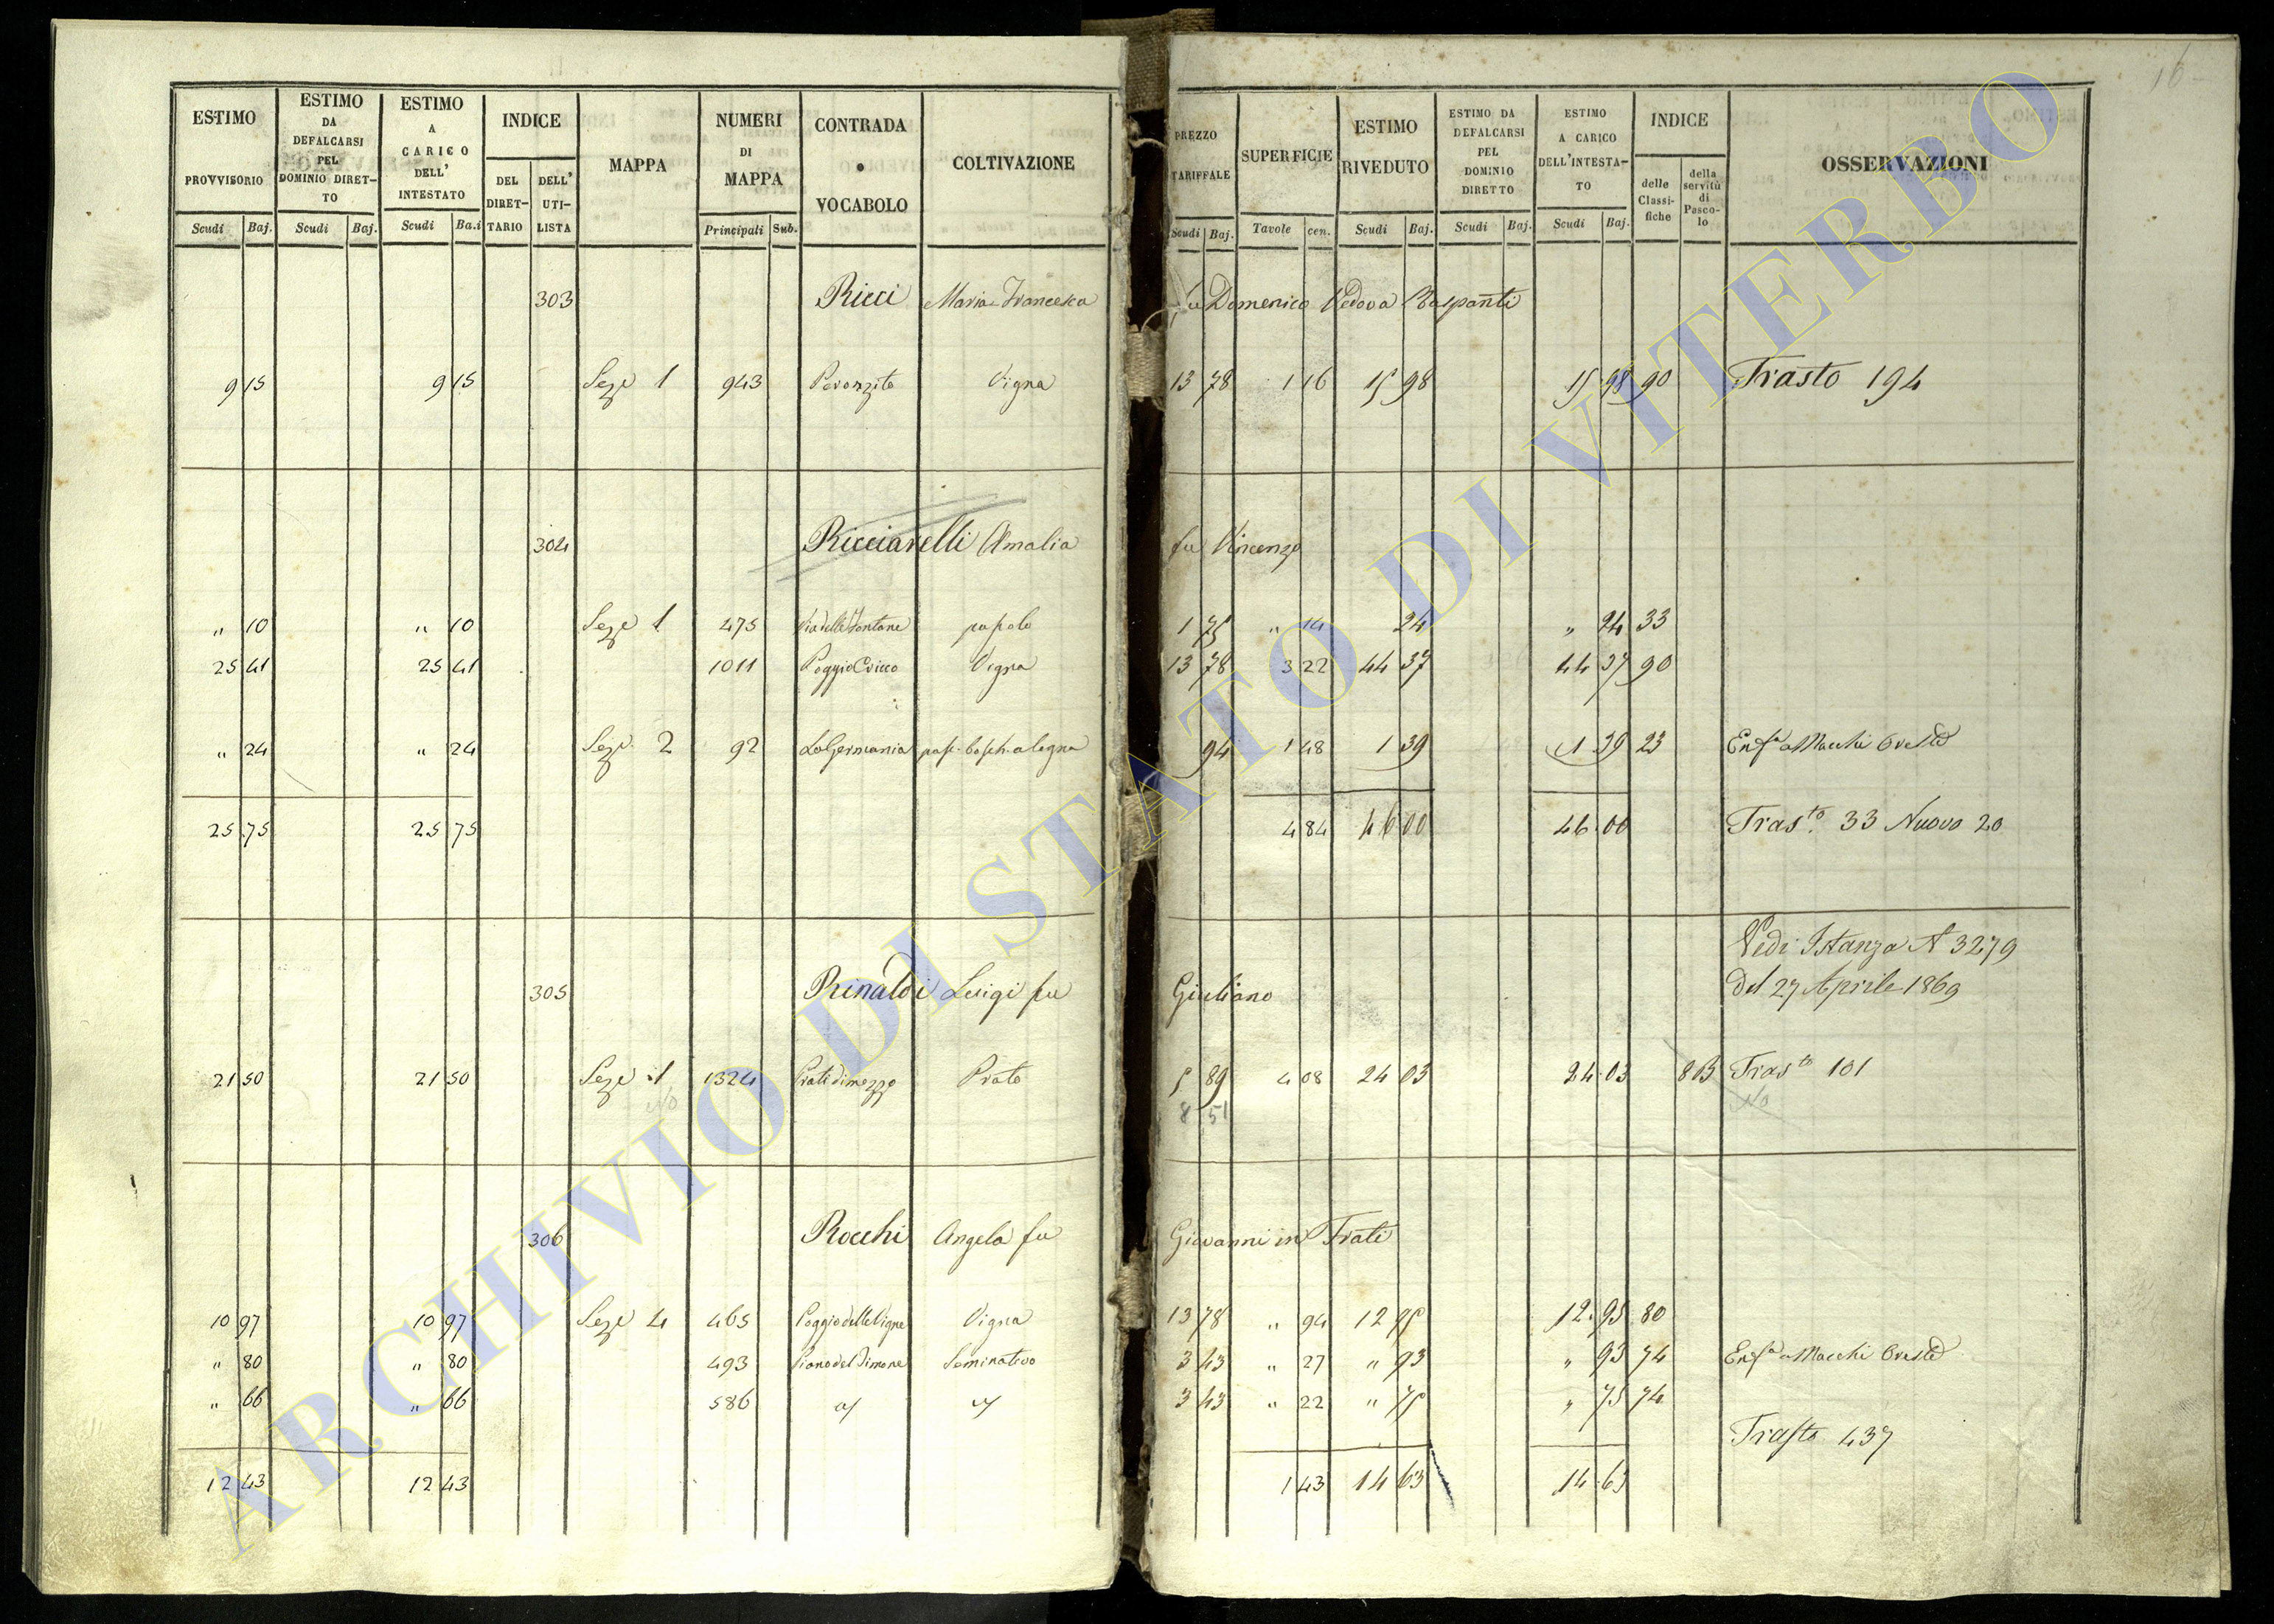 16
ESTIMO PROVVISORIO Scudi Baj.
ESTIMO DA DEFALCARSI PEL DOMINIO DIRET-TO Scudi Baj.
ESTIMO A CARICO DELL' INTESTATO Scudi Ba.i
INDICE DEL DIRET-TARIO DELL' UTI-LISTA
MAPPA
NUMERI DI MAPPA Principali Sub.
CONTRADA o VOCABOLO
COLTIVAZIONE
PREZZO TARIFFALE Scudi Baj.
SUPERFICIE Tavole cen.
ESTIMO RIVEDUTO Scudi Baj.
ESTIMO DA DEFALCARSI PEL DOMINIO DIRETTO Scudi Baj.
ESTIMO A CARICO DELL'INTESTA-TO Scudi Baj.
INDICE delle Classi-fiche della servitù di Pasco-lo
OSSERVAZIONI
303 Ricci Maria Francesca fu Domenico Vedova
9 15 9 15 Seze 1 943 Vigna 13 78 1 16 15 98 15 98 90 Trasto 194
304 Ricciarelli Amalia fu Vincenzo
" 10 " 10 Seze 1 475 Via delle Fontane pascolo 1 75 " 14 24 " 24 33
25 41 25 41 1011 Vigna 13 78 3 22 44 37 44 37 90
" 24 " 24 Seze 2 92 La Germania pasc. bosch. a legna 94 1 48 1 39 1 39 23 Enfa a Macchi Oreste
25 75 25 75 4 84 46 00 46 00 Trasto. 33 Nuovo 20
Vedi Istanza N 3279
305 Rinaldi Luigi fu Giuliano Del 27 Aprile 1869
21 50 21 50 Seze 1 1324 Prati di mezzo Prato 5 89 4 08 24 03 24 03 8B Trasto 101
No 8 51 No
306 Rocchi Angela fu Giovanni in Frati
10 97 10 97 Seze 4 465 Poggio delle Vigne Vigna 13 78 " 94 12 95 12 95 80
" 80 " 80 493 Piano del Timone Seminativo 3 43 " 27 " 93 " 93 74 Enfa a Macchi Oreste
" 66 " 66 586 3 43 " 22 " 75 " 75 74
Trasto 437
12 43 12 43 1 43 14 63 14 63
ARCHIVIO DI STATO DI VITERBO